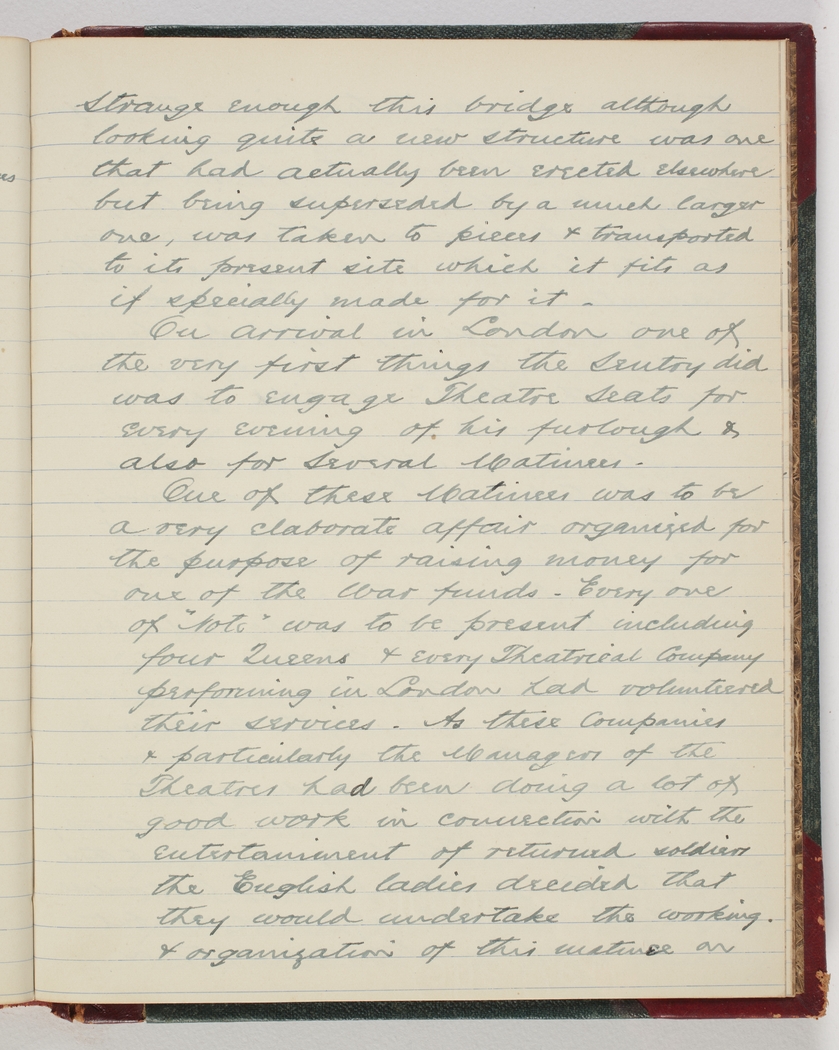 Strange enough this bridge although
looking quite a new structure was one
that had actually been erected elsewhere
but being superseded by a much larger
one, was taken to pieces & transported
to its present site which it fits as
if specially made for it -
On arrival in London one of
the very first things the Sentry did
was to engage Theatre Seats for
every evening of his furlough &
also for Several Matinees.
One of these Matinees was to be
a very elaborate affair organized for
the purpose of raising money for
one of the War funds - Every one
of "Note" was to be present including
four Queens & every Theatrical Company
performing in London had volunteered
their services - As these Companies
& particularly the Managers of the
Theatres had been doing a lot of
good work in connection with the
entertainment of returned soldiers
the English ladies decided that
they would undertake the working.
& organization of this matinee on